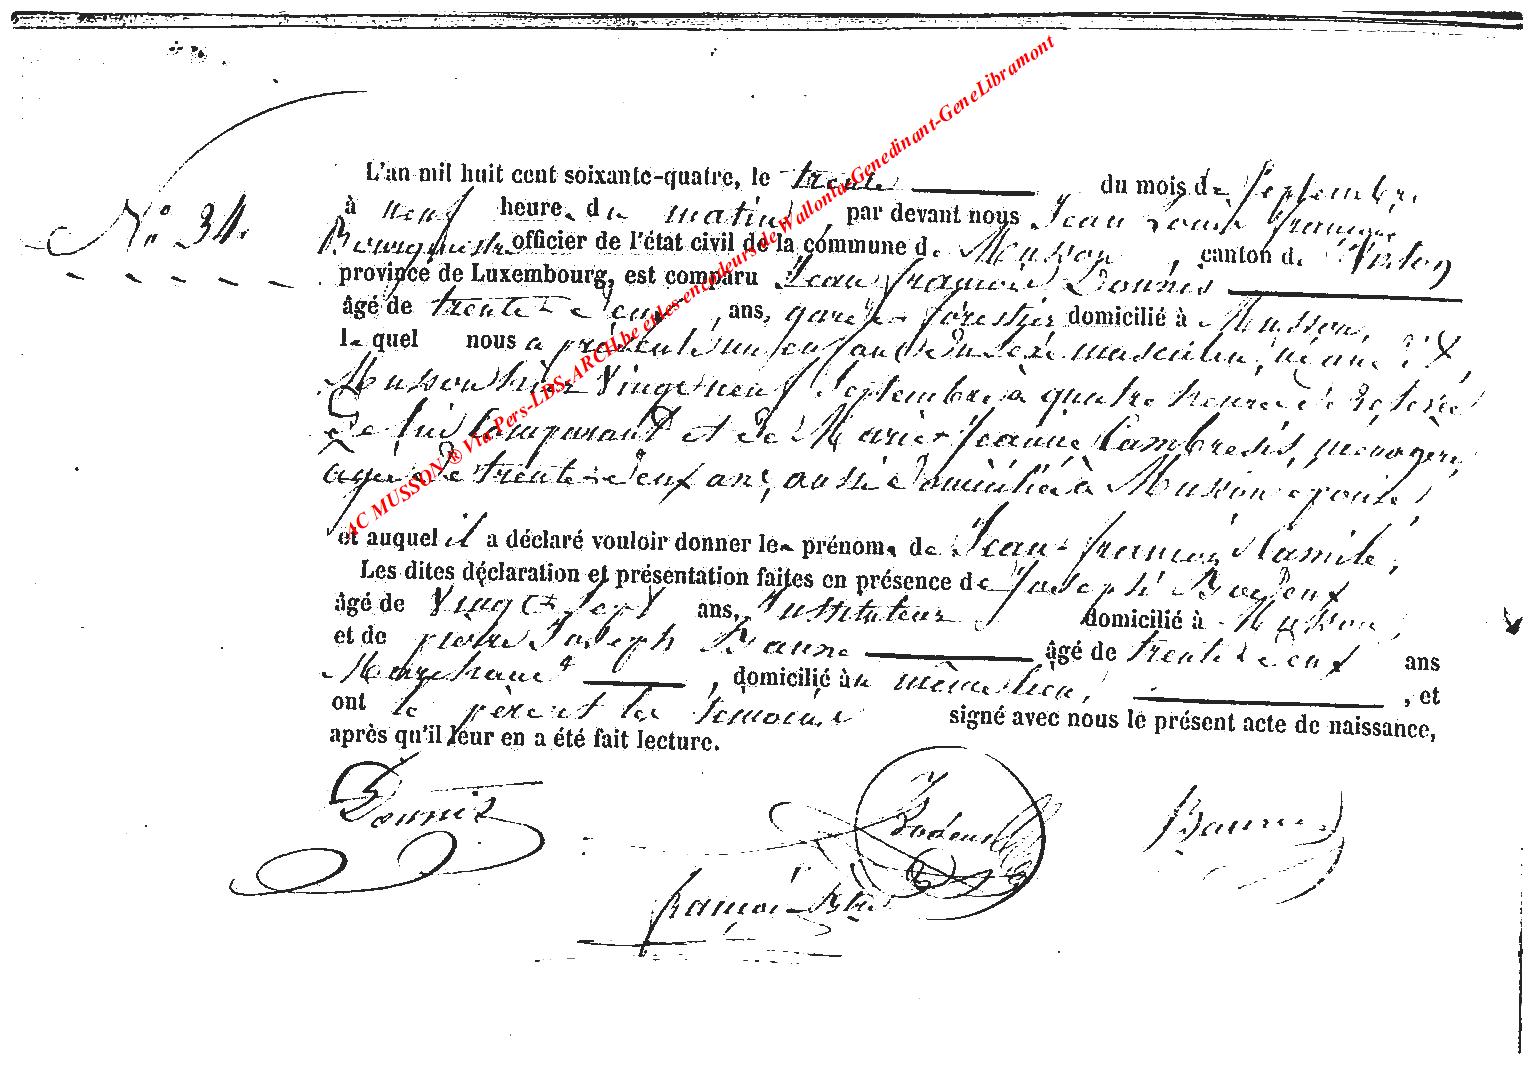 L'an mil huit cent soixante-quatre, le trente du mois de Septembre
N.° 34.
à neuf heures du matin, par devant nous Jean Louis François
officier de l'état civil de la commune de Musson, canton de Virton
province de Luxembourg, est comparu Jean François Donnis
âgé de trente-deux, ans, garde-forestier domicilié à Musson,
lequel nous a présenté un enfant du sexe masculin, né
Musson hier vingt neuf Septembre à quatre heures de
de lui comparant et de Marie-Jeanne Cambresis, ménagère,
âgée de trente-deux ans, aussi domiciliée à Musson, épouse,
et auquel il a déclaré vouloir donner les prénoms de Jean-François Camile,
Les dites déclaration et présentation faites en présence de Joseph Bodeux
âgé de vingt-sept ans, Instituteur domicilié à Musson,
et de pierre Joseph Baune âgé de trente-deux ans
Marchand, domicilié au même lieu, , et
ont le père et les témoins signé avec nous le présent acte de naissance,
après qu'il leur en a été fait lecture.
Donnis
J Bodeux
Baune
françois
AC MUSSON ® Via Pers-LDS-ARCH.be et les encodeurs de Wallonia-Genedinant-GeneLibramont